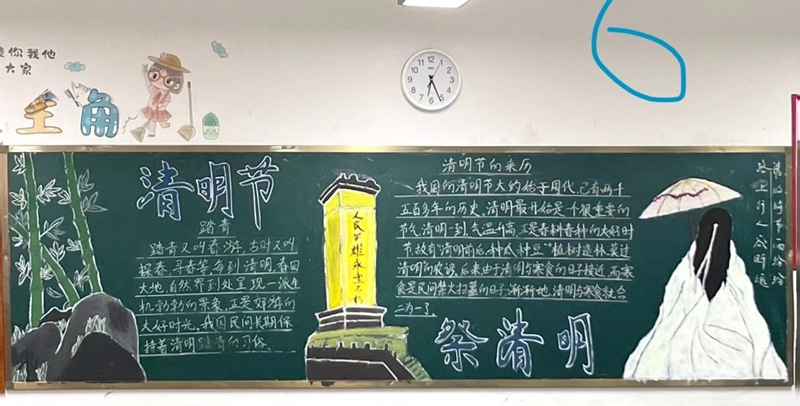 你我他
大家
主角
6
清明节
踏青
踏青又叫春游,古时又叫
探春、寻春等每到清明,春回
大地,自然界到处呈现一派生
机勃勃的景象,正是好游的
大好时光,我国民间长期保
持着清明踏青的习俗
人民英雄永垂不朽
清明节的来历
我国的清明节大约始于周代,已有两千
五百多年的历史,清明最开始是个很重要的
节气,清明一到气温升高,正是春耕春种的大好时
节,故有"清明前后,种瓜种豆""植树造林,莫过
清明的农谚,后来由于清明与寒食的日子接近,而寒
食是民间禁火扫墓的日子,渐渐地,清明与寒食就合
二为一了
祭清明
清明时节雨纷纷
路上行人欲断魂
12
1
2
3
4
5
6
7
8
9
10
11